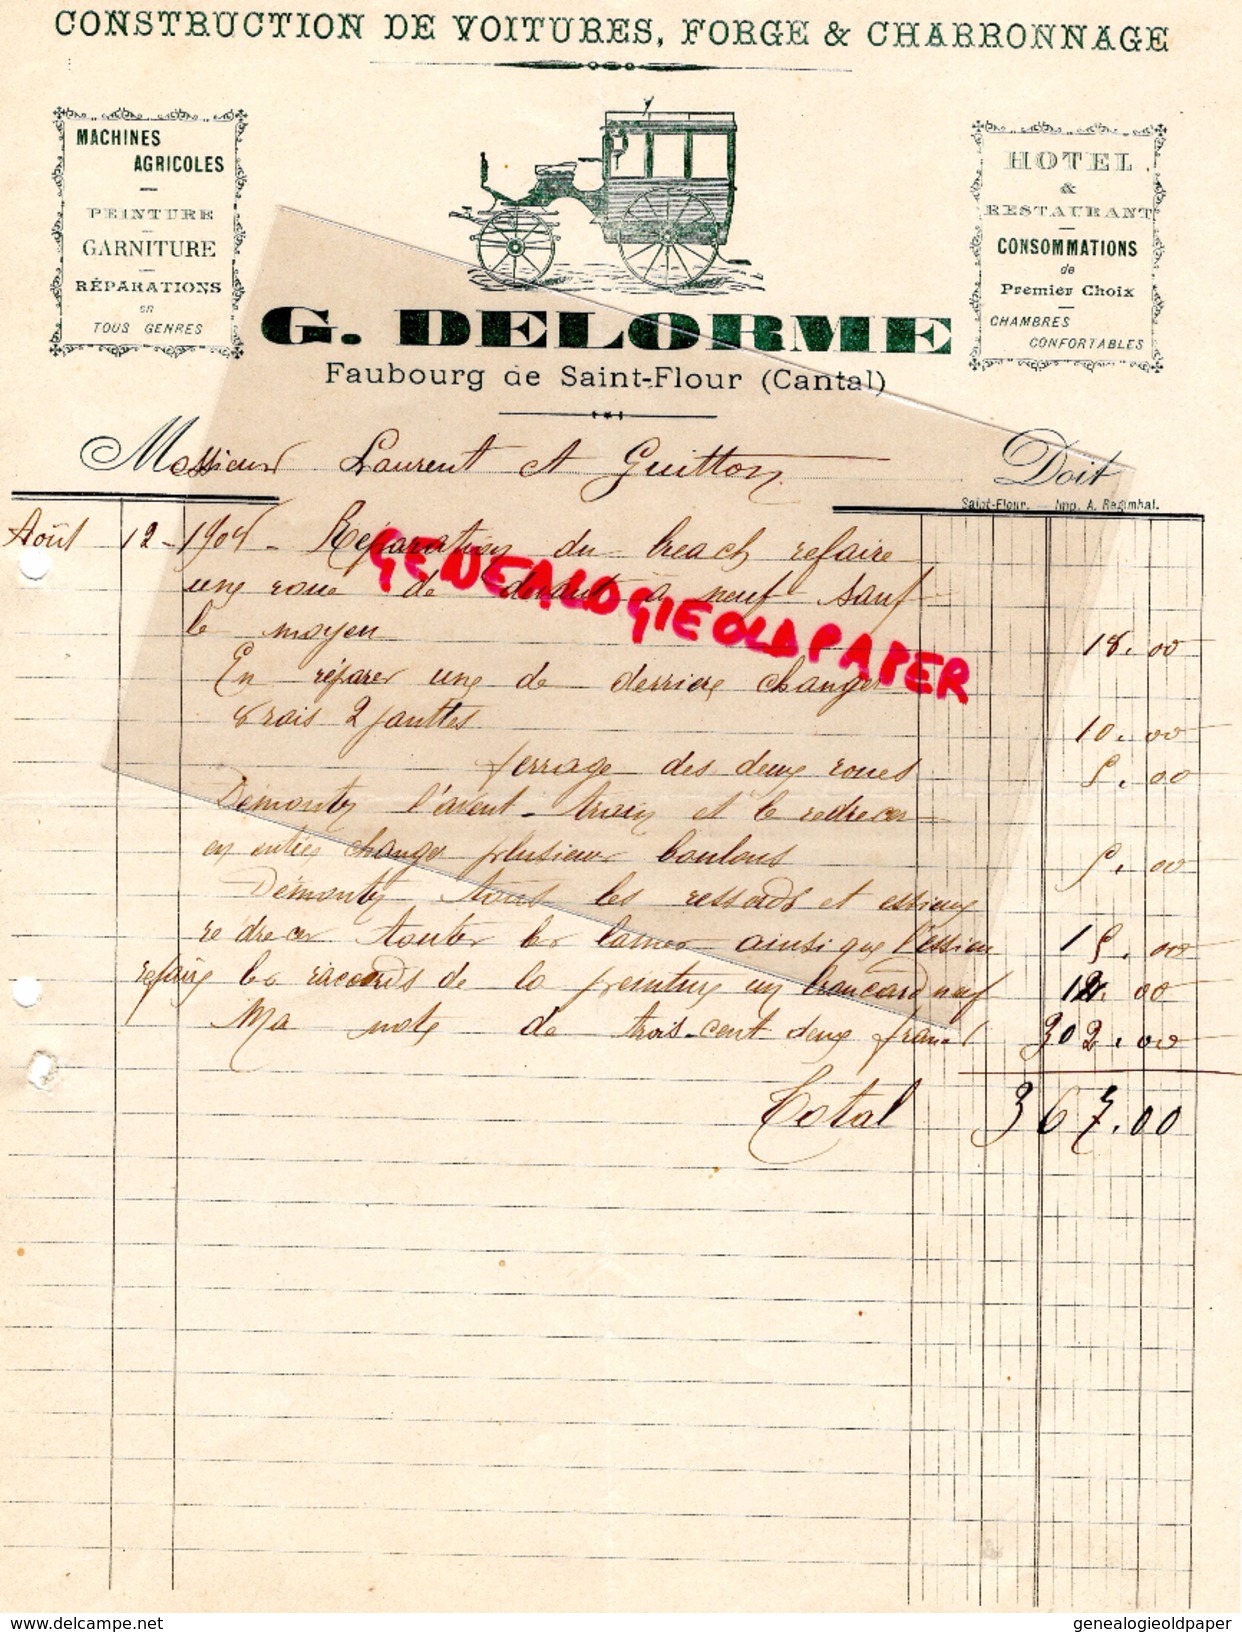 CONSTRUCTION DE VOITURES, FORGE & CHARRONNAGE
MACHINES
AGRICOLES
PEINTURE
GARNITURE
RÉPARATIONS
en
TOUS GENRES
HOTEL
&
RESTAURANT
CONSOMMATIONS
de
Premier Choix
CHAMBRES
CONFORTABLES
G. DELORME
Faubourg de Saint-Flour (Cantal)
Messieurs Laurent et Guitton Doit
Saint-Flour. Imp. A. Regimbal.
Août 12 - 1904 - Réparation du breach refaire
une roue de devant à neuf sauf
le moyeu 18.00
En réparer une de derriere changer
8 rais 2 janttes 10.00
ferrage des deux roues 5.00
Démonter l'avent-train et le redrecer
en entier changer plusieur boulons 5.00
Démonter tous les ressords et essieux
redrecer toutes les lames ainsi que l'essieu 15.00
refaire les raccords de la peinture un brancard neuf 12.00
Ma note de trois-cent deux francs 302.00
Total 367.00
GENEALOGIEOLDPAPER
www.delcampe.net
genealogieoldpaper